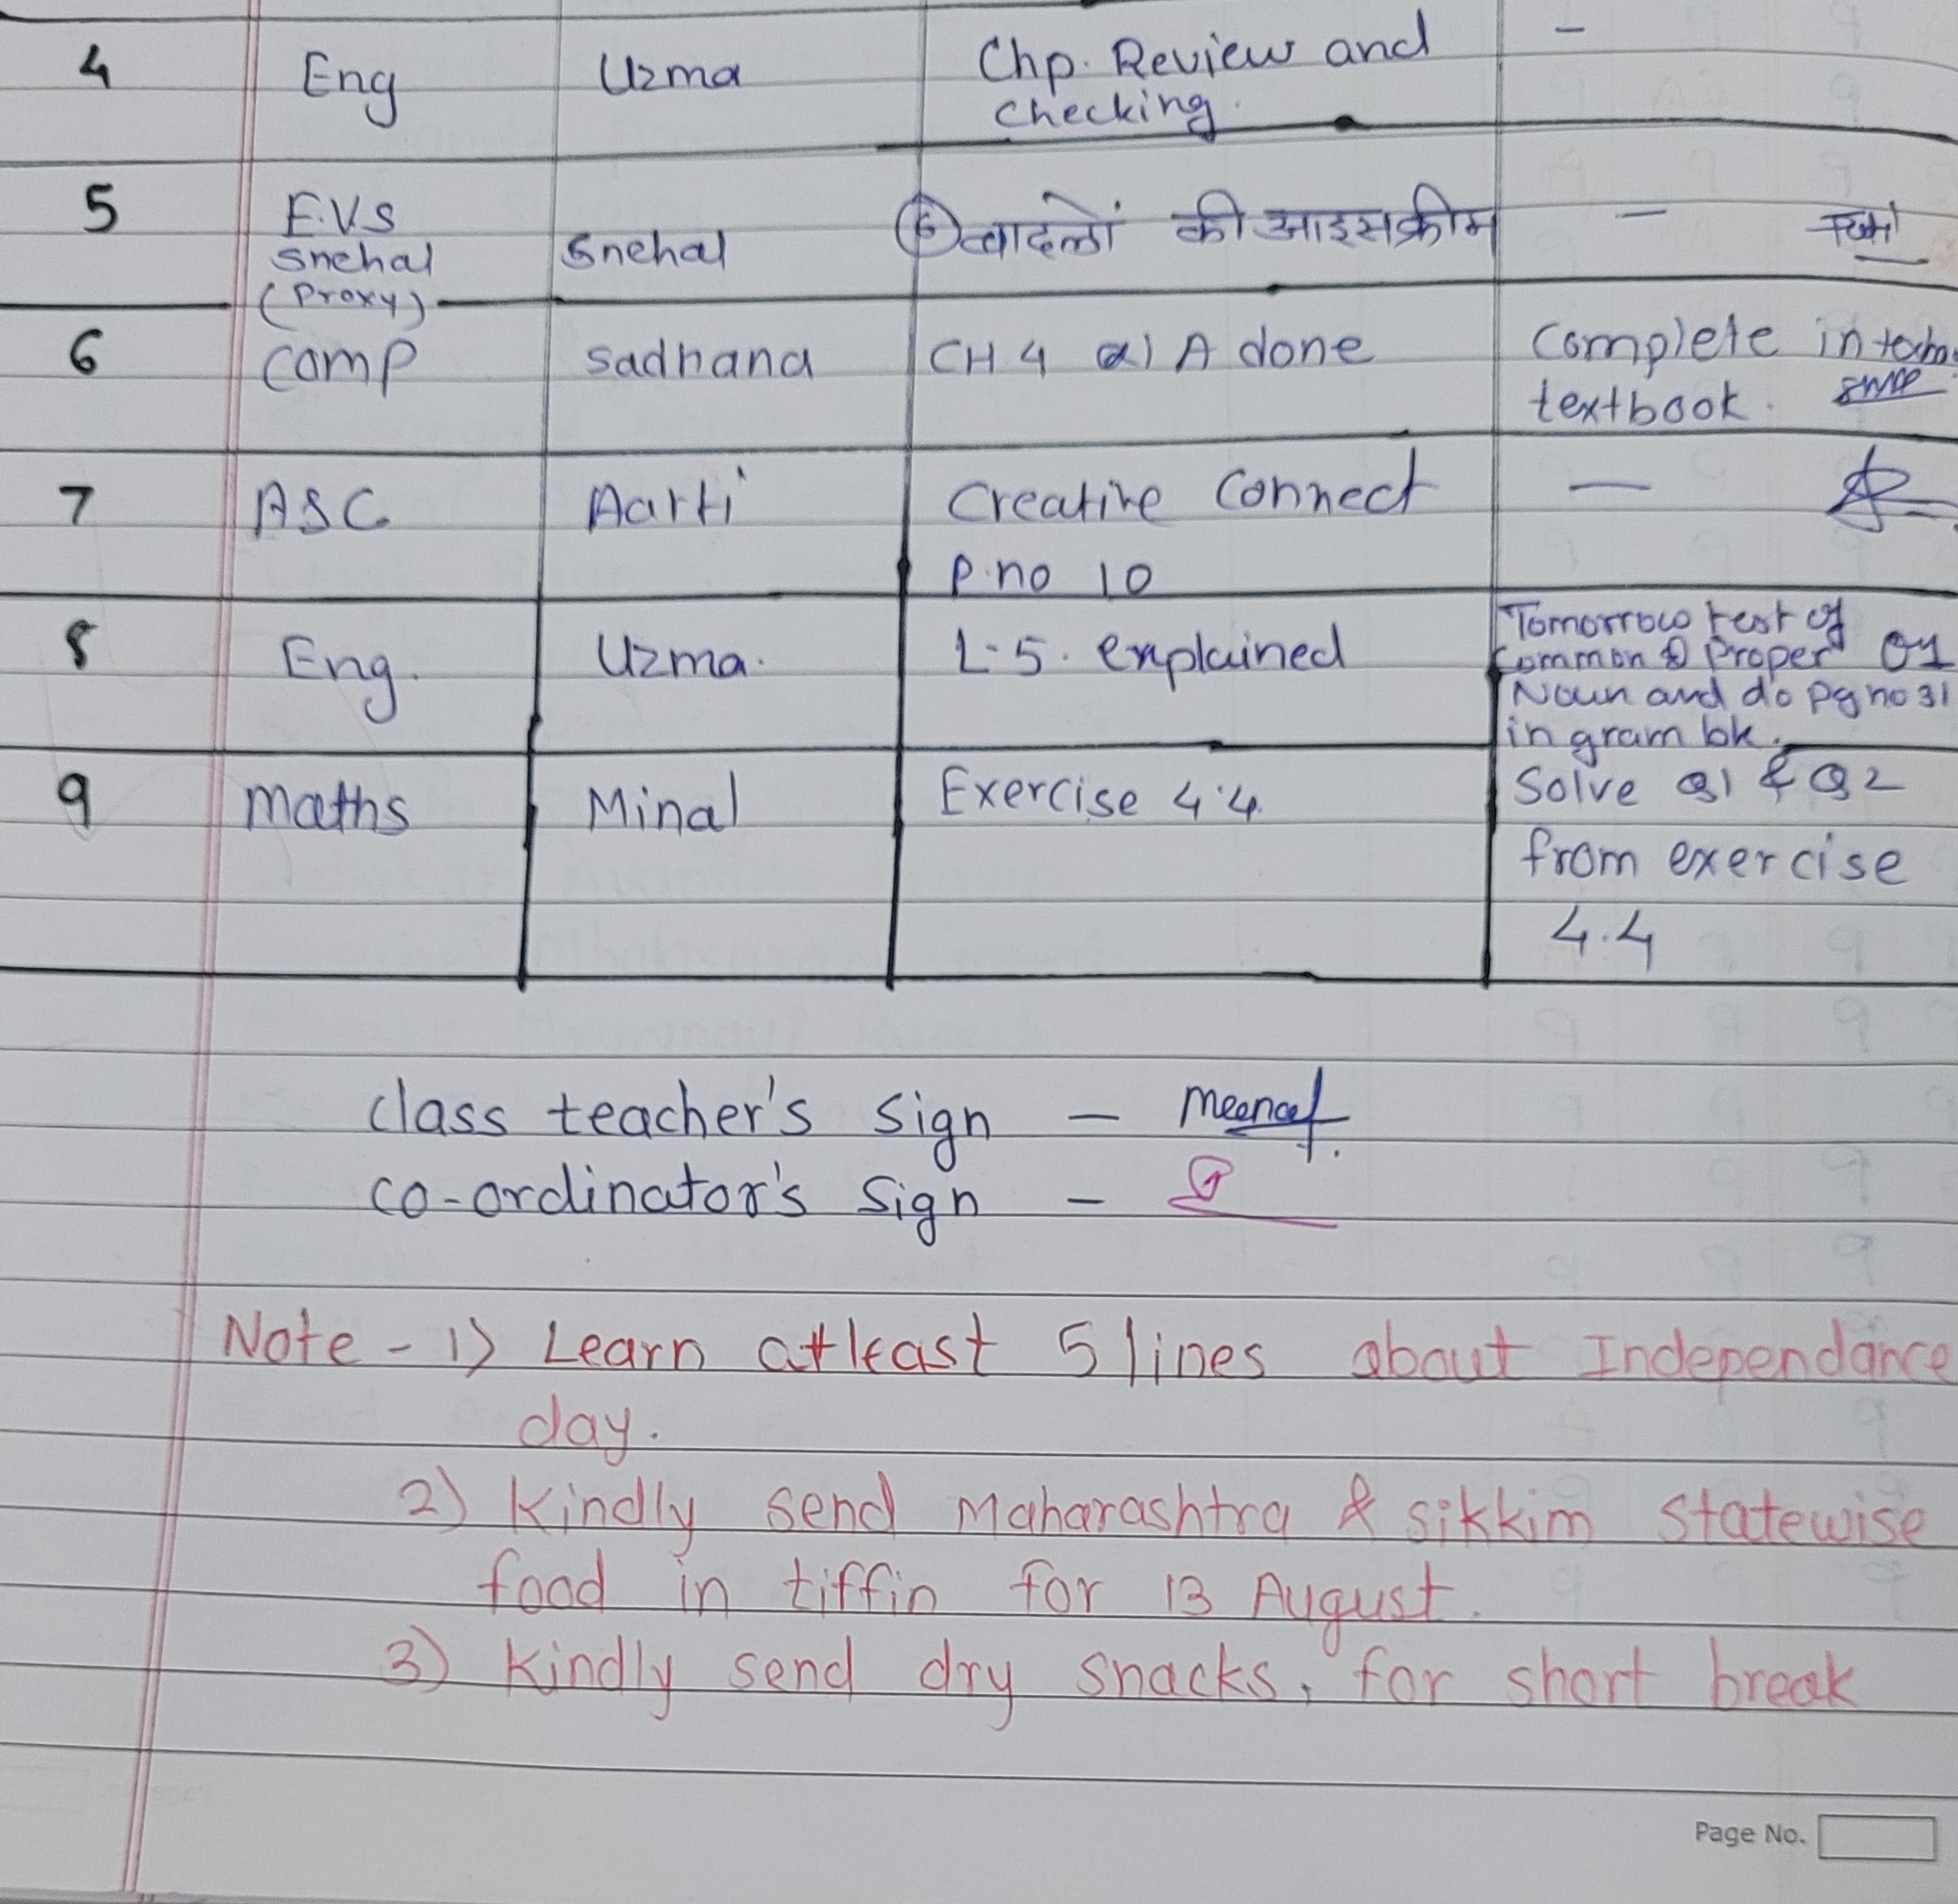 4 Eng Uzma Chp. Review and -
checking.
5 E.V.S Snehal ⑥ बादलों की आइसक्रीम -
Snehal
(Proxy)
6 Comp Sadhana CH 4 Q) A done Complete in
textbook.
7 ASC Aarti Creative Connect -
P.no 10
8 Eng. Uzma. L-5. explained Tomorrow test of
Common & Proper
Noun and do pg no 31
in gram bk.
9 Maths Minal Exercise 4.4. Solve Q1 & Q2
from exercise
4.4
Class teacher's Sign -
Co-ordinator's Sign -
Note - 1) Learn atleast 5 lines about Independance
day.
2) Kindly send Maharashtra & Sikkim Statewise
food in tiffin for 13 August.
3) Kindly send dry snacks, for short break
Page No.